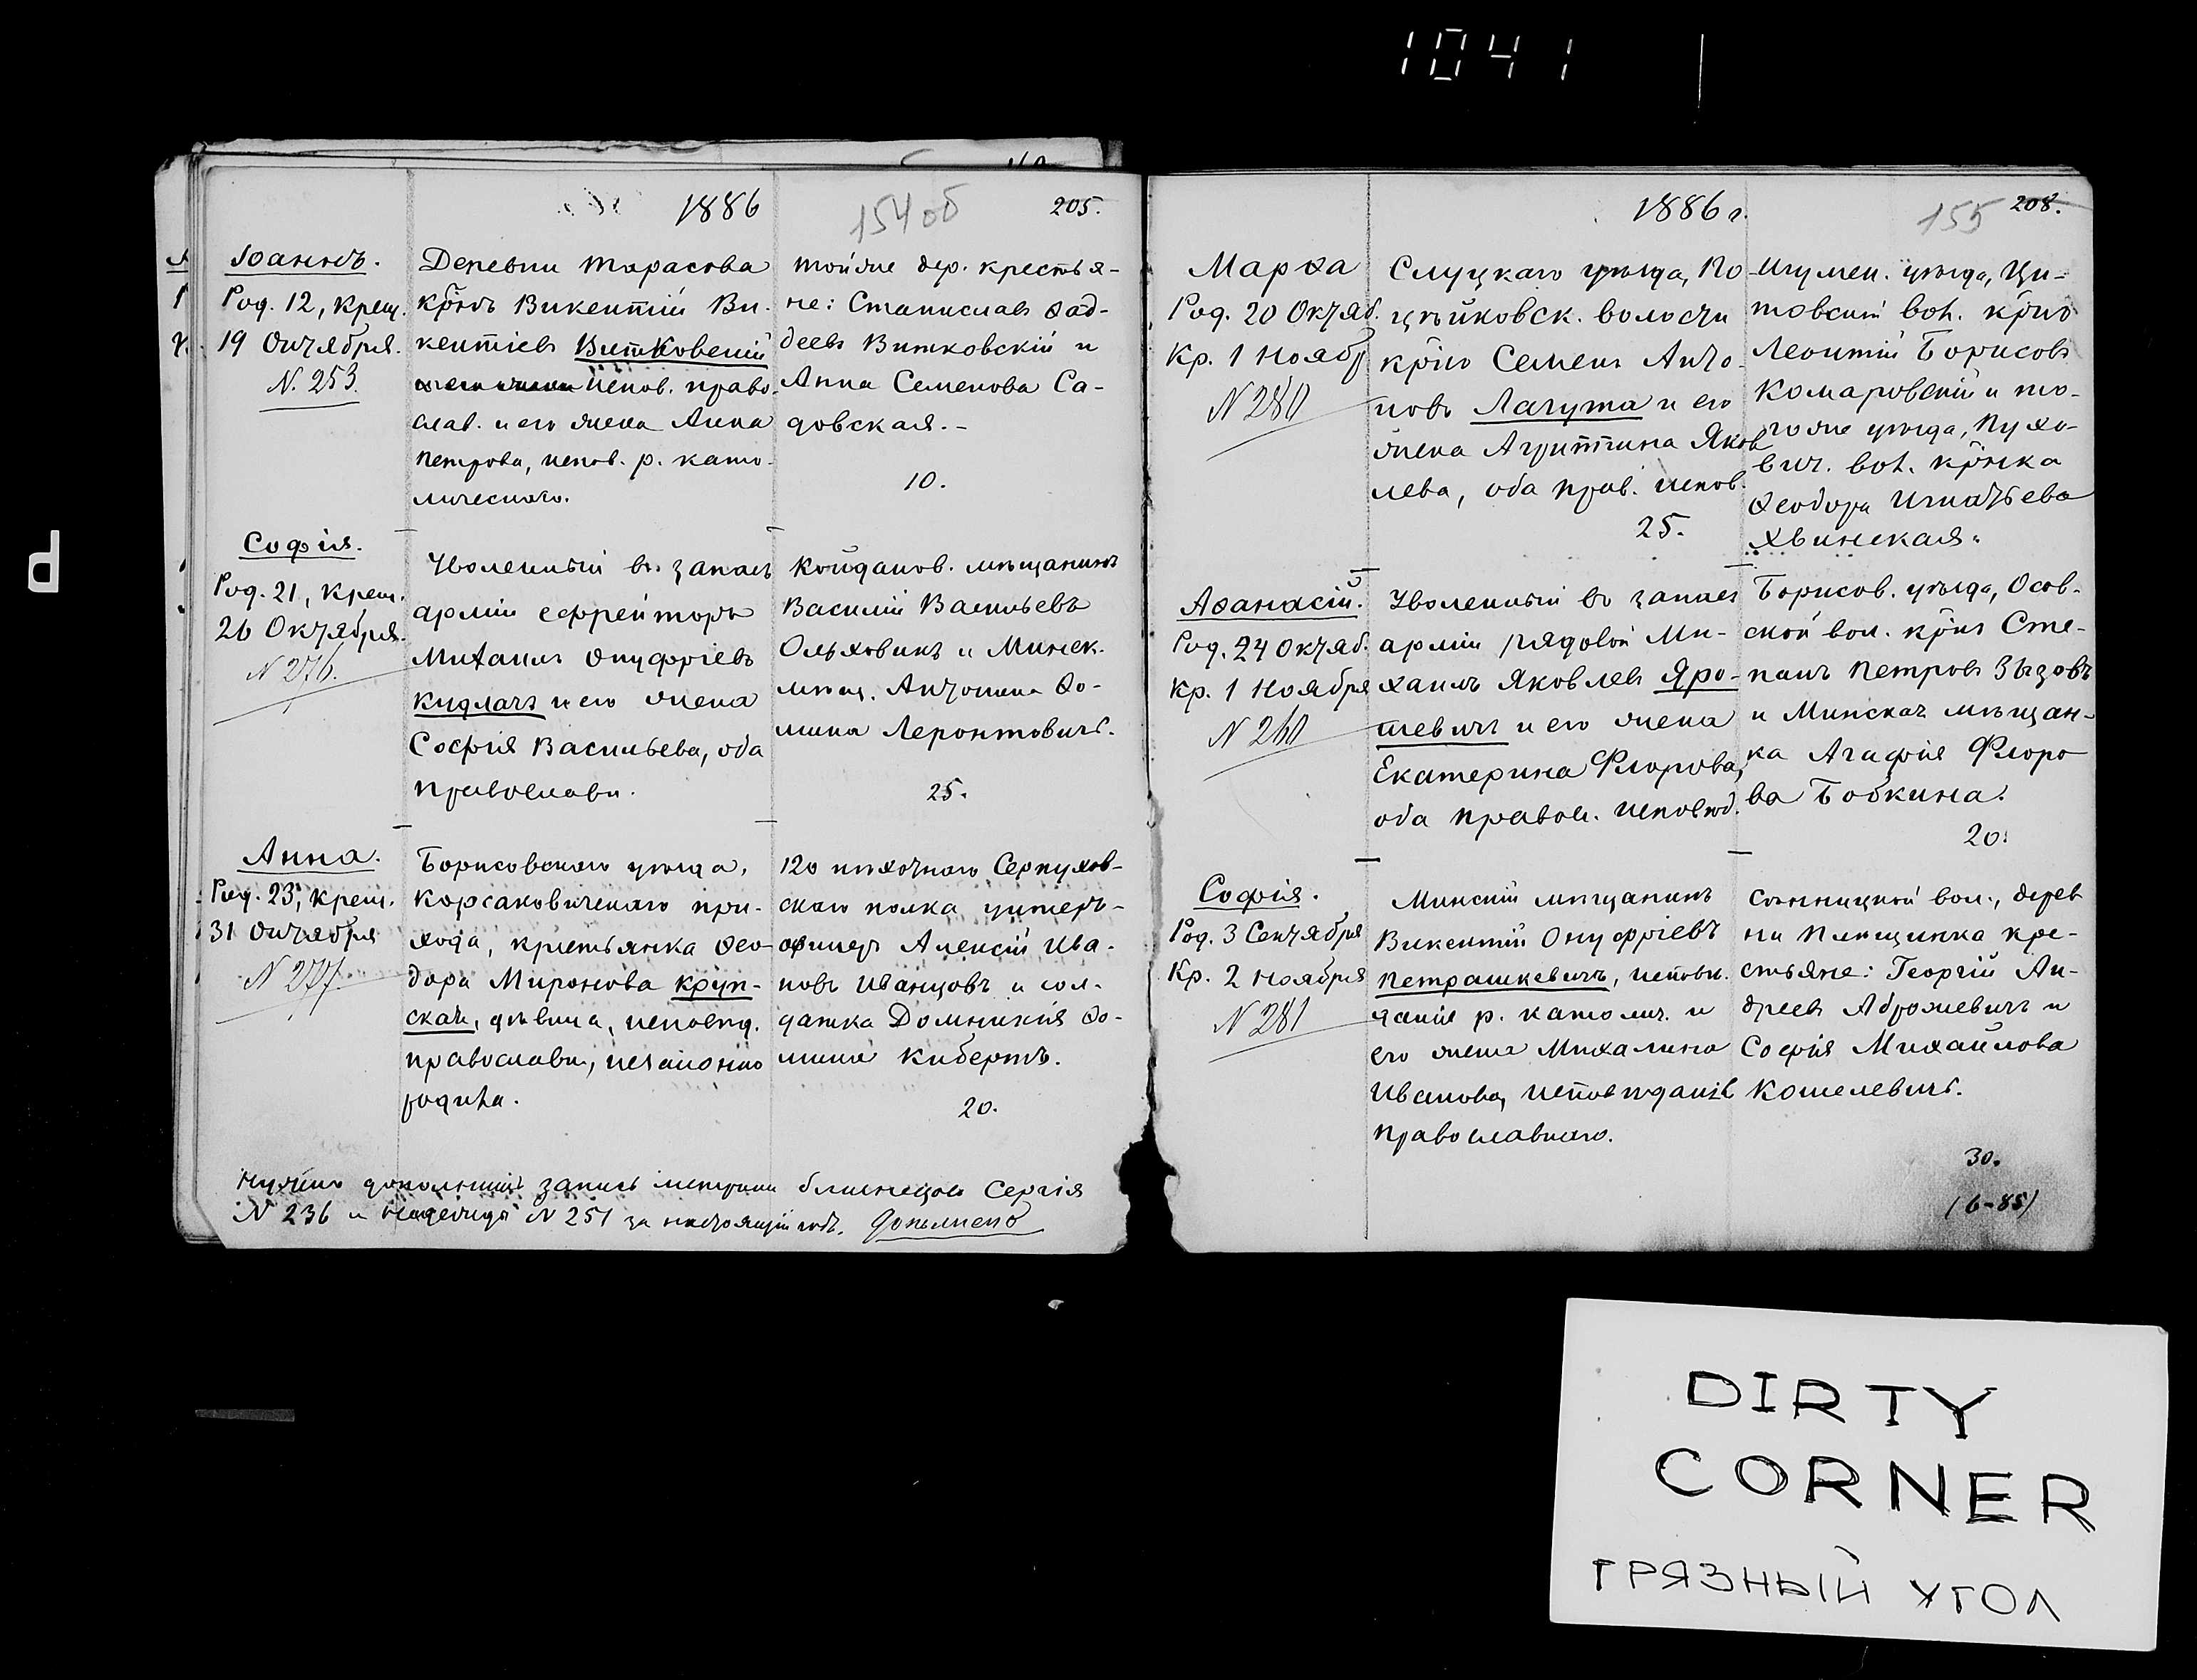 1041
1886
154 об
205.
Іоаннъ.
Род. 12, крещ.
19 Октября.
N. 253.
Деревни Тарасова
кр̃нъ Викентій Ви-
кентіевъ Витковскій
испов. право-
слав. и его жена Анна
Петрова, испов. р. като-
лическаго.
тойже дер. крестья-
не: Станиславъ Ѳад-
деевъ Витковскій и
Анна Семенова Са-
довская.-
10.
Софія.
Род. 21, крещ.
26 Октября.
N 276.
Уволенный въ запасъ
арміи ефрейторъ
Михаилъ Онуфріевъ
Кидлачъ и его жена
Софія Васильева, оба
православн.
Койданов. мѣщанинъ
Василій Васильевъ
Ольховикъ и Минск.
мѣщ. Антонина Ѳо-
мина Леронтовичъ.
25.
Анна.
Род. 23, крещ.
31 Октября
N 277.
Борисовскаго уѣзда,
Корсаковичскаго при-
хода, крестьянка Ѳео-
дора Миронова Круп-
ская, дѣвица, исповѣд.
православн., незаконно
родила.
120 пѣхотнаго Серпухов-
скаго полка унтеръ-
офицеръ Алексій Ива-
новъ Иванцовъ и сол-
датка Домникія Ѳо-
мина Кибертъ.
20.
Нужно дополнить запись метрики близнецовъ Сергія
N 236 и Надежды N 251 за настоящій годъ. Дополнено
1886 г.
155
208.
Марѳа
Род. 20 Октяб.
Кр. 1 Ноябр
N 280
Слуцкаго уѣзда, По-
цѣйковск. волости
кр̃нъ Семенъ Анто-
новъ Лагута и его
жена Агриппина Яков
лева, оба прав. испов.
25.
Игумен. уѣзда, Ци-
товской вол. кр̃нъ
Леонтій Борисовъ
Комаровскій и то-
гоже уѣзда, Пухо-
вич. вол. кр̃нка
Ѳеодора Игнатьева
Хвинская.
Аѳанасій.
Род. 24 Октяб.
Кр. 1 Ноября
N 260
Уволенный въ запасъ
арміи рядовой Ми-
хаилъ Яковлевъ Яро-
шевичъ и его жена
Екатерина Флорова,
оба правосл. исповѣд.
Борисов. уѣзда, Осов-
ской вол. кр̃нъ Сте-
панъ Петровъ Зызовъ
и Минская мѣщан-
ка Агафія Флоро
ва Бобкина.
20.
Софія.
Род. 3 Сентября
Кр. 2 Ноября
N 281
Минскій мѣщанинъ
Викентій Онуфріевъ
Петрашкевичъ, исповѣ-
данія р. католич. и
его жена Михалина
Иванова, исповѣданія
православнаго.
Сѣнницкой вол., дерев
ни Плещинка кре-
стьяне: Георгій Ан-
дреевъ Аброжевичъ и
Софія Михайлова
Кошелевичъ.
30.
(6-85)
DIRTY
CORNER
ГРЯЗНЫЙ УГОЛ